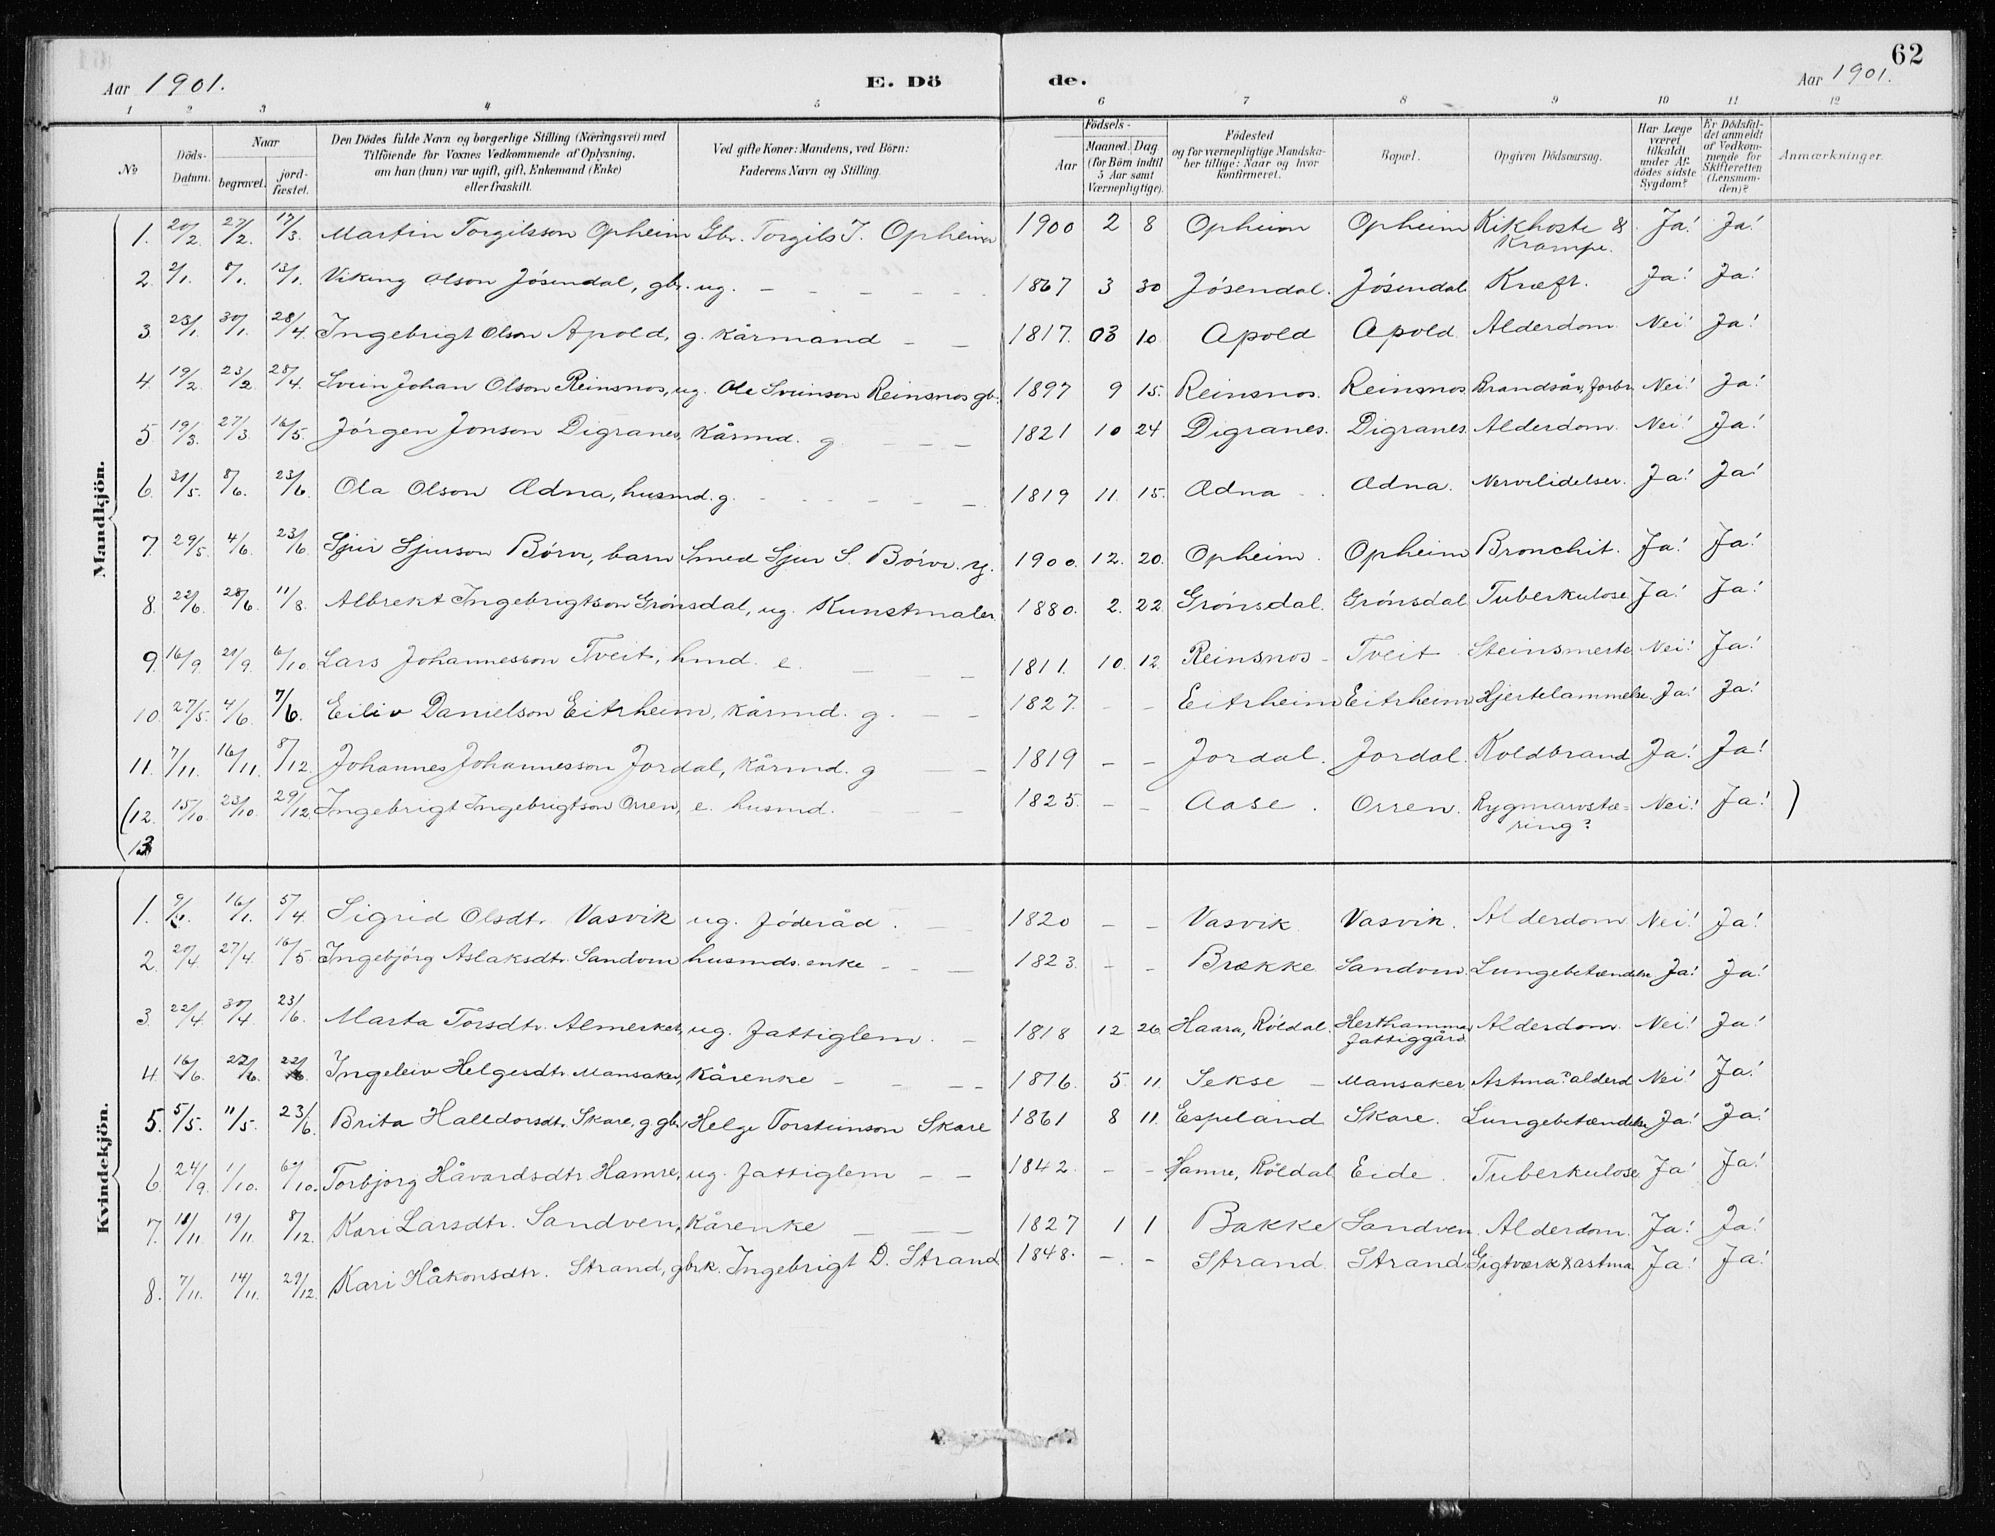 62
Aar 1901. E. Dö de. Aar 1901.
1 2 3 4 5 6 7 8 9 10 11 12
No | Döds-Datum. | Naar begravet. | jordfæstet. | Den Dödes fulde Navn og borgerlige Stilling (Næringsvei) med Tilföiende for Voxnes Vedkommende af Oplysning, om han (hun) var ugift, gift, Enkemand (Enke) eller fraskilt. | Ved gifte Koner: Mandens, ved Börn: Faderens Navn og Stilling. | Födsels- Aar | Maaned. Dag. (for Börn indtil 5 Aar samt Værnepligtige). | Födested og for værnepligtige Mandskaber tillige: Naar og hvor konfirmeret. | Bopæl. | Opgiven Dödsaarsag. | Har Læge været tilkaldt under Afdödes sidste Sygdom? | Er Dödsfaldet anmeldt af Vedkommende for Skifteretten (Lensmanden)? | Anmærkninger.
Mandkjön.
1. 20/2 27/2. 17/3. Martin Torgilsson Opheim Gbr. Torgils T. Opheim 1900 2 8 Opheim Opheim Kikhoste & Krampe. Ja! Ja!
2. 2/1. 8/1. 13/1. Viking Olson Jósendal, gbr. ug. 1867 3 30 Jósendal. Jósendal Kræft. Ja! Ja!
3. 23/1. 30/1. 28/4. Ingebrigt Olson Apold, g. kårmand 1817. 03 10 Apold Apold. Alderdom. Nei! Ja!
4. 19/2. 23/2 28/4. Svein Johan Olson Reinsnos, ug. Ole Sveinson Reinsnos gb. 1897 9 15. Reinsnos. Reinsnos. Brandsår, forbr. Nei! Ja!
5. 19/3. 27/3. 16/5. Jórgen Jonson Digranes, kårmd. g 1821 10 24 Digranes. Digranes. Alderdom. Nei! Ja!
6. 31/5. 8/6. 23/6. Ola Olson Ædna, husmd. g. 1819 11. 15. Ædna Ædna. Nervelidelser. Ja! Ja!
7. 29/5. 4/6. 23/6. Sjur Sjurson Bórve, barn Smed Sjur S. Bórve. 1900. 12. 20. Opheim. Opheim Bronchit. Ja! Ja!
8. 22/6. 28/6. 11/8. Albrekt Ingebrigtson Grónsdal, ug. Kunstmaler. 1880. 2. 22 Grónsdal. Grónsdal Tuberkulose Ja! Ja!
9. 16/9. 21/9. 6/10 Lars Johannesson Tveit, hmd. e. 1811. 10. 12. Reinsnos Tveit Steinsmerte Nei! Ja!
10. 27/5. 4/6. 7/6. Eiliv Danielson Eitrheim, kårmd. g. 1827. Eitrheim Eitrheim Hjertelammelse. Ja! Ja!
11. 7/11. 16/11. 8/12. Johannes Johannesson Jordal, kårmd. g 1819 Jordal. Jordal. Koldbrand Ja! Ja!
(12. 15/10. 23/10. 29/12. Ingebrigt Ingebrigtson Orren, e. husmd. 1825. Aase. Orren. Rygmarvstæring? Nei! Ja! )
13
Kvindekjön.
1. 16/1. 5/4. Sigrid Olsdt. Vasvik ug. fóderåd. 1820 Vasvik Vasvik. Alderdom Nei! Ja!
2. 20/4. 27/4. 16/5. Ingebjórg Aslaksdtr. Sandven husmds. enke 1823. Brække Sandven. Lungebetændelse Ja! Ja!
3. 22/4. 30/4. 23/6. Marta Torsdtr. Almerket, ug. fattiglem. 1818 12 26. Haara, Róldal. Hesthammer fattiggård Alderdom. Nei! Ja!
4. 16/6. 22/6. 22/6. Ingeleiv Helgesdtr. Mansaker, kårenke 1816. 5. 11. Sekse Mansaker Astma? alderd Nei! Ja!
5. 5/5. 11/5. 23/6. Brita Halldorsdt. Skare, g gb. Helge Torsteinson Skare 1861 8 11. Espeland Skare. Lungebetændelse Ja! Ja!
6. 24/9. 1/10. 6/10. Torbjórg Håvardsdtr. Hamre, ug. fattiglem 1842. Hamre, Róldal Eide. Tuberkulose Ja! Ja!
7. 18/11. 19/11. 8/12. Kari Larsdtr. Sandven, kårenke 1827 1 1 Bakke Sandven Alderdom. Ja! Ja!
8. 7/11. 14/11. 29/12. Kari Håkonsdtr. Strand, gbrk. Ingebrigt D. Strand 1848. Strand. Strand. Gigtværk & astma Ja! Ja!